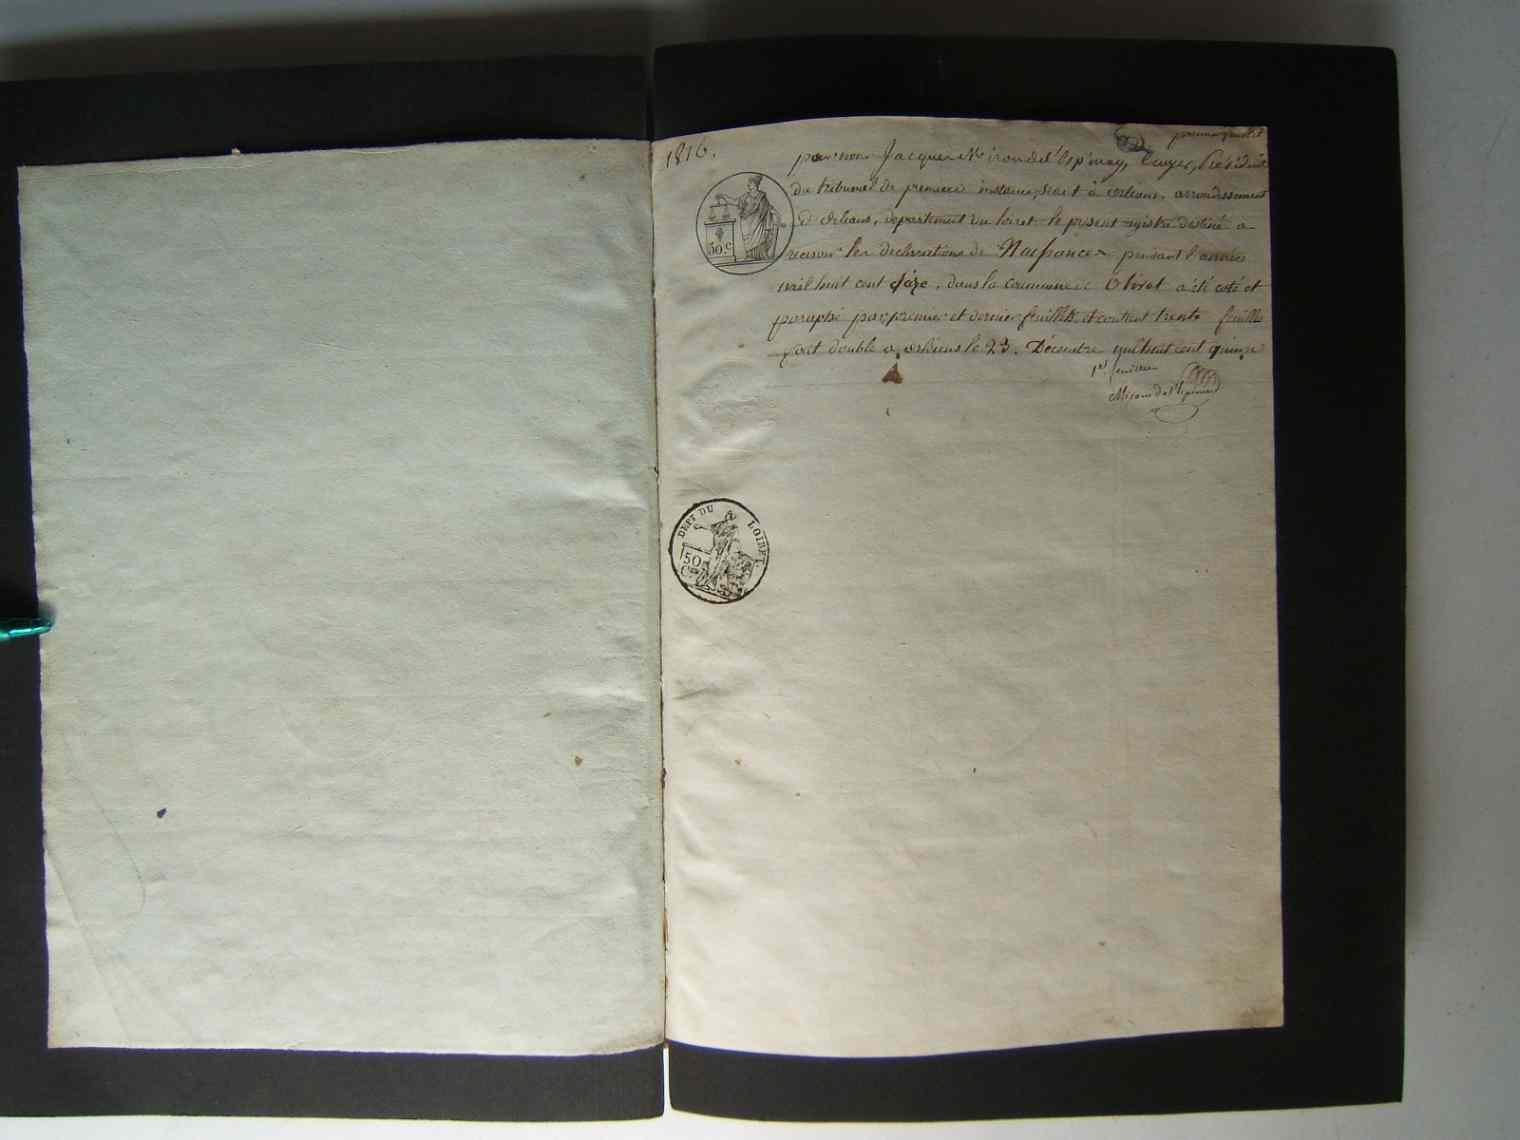 premier feuillet
1816.
par nous Jacques Miron de l'Espinay, Ecuyer, Président
du tribunal de premiere instance, séant à orléans, arrondissement
d'Orléans, departement du loiret le présent registre destiné a
recevoir les declarations de Naissances pendant l'année
mil huit cent seize, dans la commune d' Olivet a été coté et
paraphé par premier et dernier feuillets et contient trente feuillets
fait double a orléans le 23. Décembre mil huit cent quinze
50.c
Miron de l'Espinay
DEPT DU LOIRET.
50
Cmes